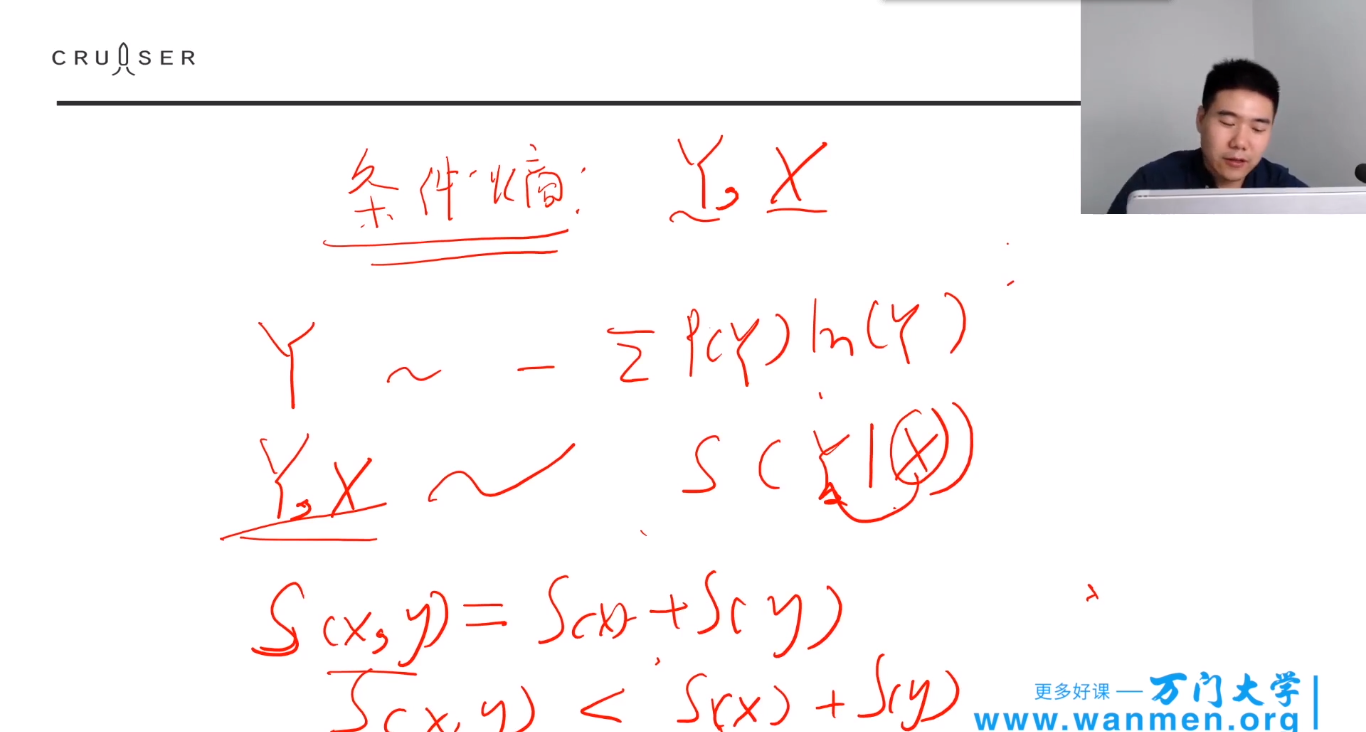 CRUISER
条件熵: Y, X
Y ~ - Σ P(Y) ln(Y)
Y, X ~ S(Y|X)
S(x, y) = S(x) + S(y)
S(x, y) < S(x) + S(y)
更多好课 — 万门大学
www.wanmen.org